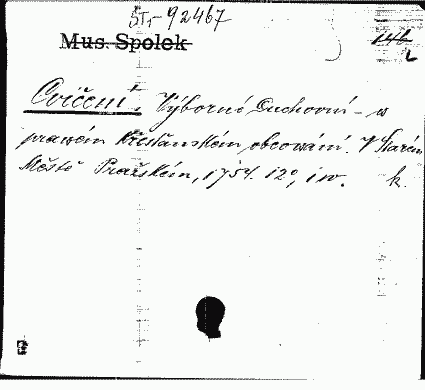 STr-92467
Mus. Spolek
Cvičení. Výborné Duchovní - w
prawém Křesťanském obcowání. V Starém
Městě Pražském, 1754. 12°, 1 w. k.